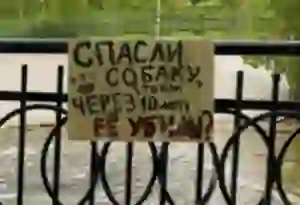 СПАСЛИ
СОБАКУ,
ЧТОБЫ
ЧЕРЕЗ 10 ЛЕТ
ЕЁ УБИТЬ?